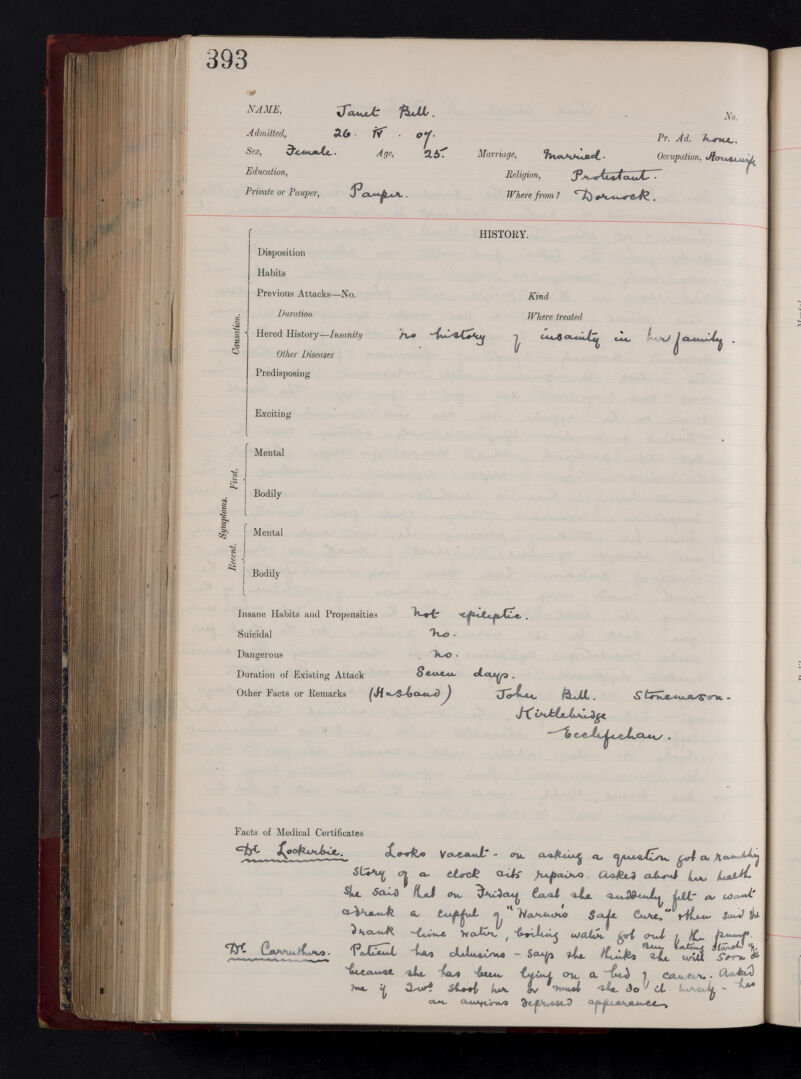 393
NAME, Janet Bell. No.
Admitted, 26. IV. 07. Pr. Ad. None.
Sex, Female. Age, 25. Marriage, Married. Occupation, Housewife
Education, Religion, Protestant.
Private or Pauper, Pauper. Where from? Dornock.
HISTORY.
Causation.
Disposition
Habits
Previous Attacks—No. Kind
Duration Where treated
Hered History—Insanity No history of insanity in her family.
Other Diseases
Predisposing
Exciting
Symptoms.
First.
Mental
Bodily
Recent.
Mental
Bodily
Insane Habits and Propensities Not epileptic.
Suicidal No.
Dangerous No.
Duration of Existing Attack Seven days.
Other Facts or Remarks (Husband) John Bell. Stonemason.
Kirtlebridge
Ecclefechan.
Facts of Medical Certificates
Dr Lockerbie. Looks vacant - on asking a question got a rambling
story of a clock & its repairs. Asked about her health
she said that on Friday last she suddenly felt a want
& drank a cupful of "Warner's Safe Cure," then said she
drank lime water, boiling water got out of the pump.
Been eating starch &c.
Dr Carruthers. Patient has delusions - says she thinks she will soon die
because she has been lying on a bed of cancer. Asked
me if I wd shoot her or must she do it herself - has
an anxious depressed appearance